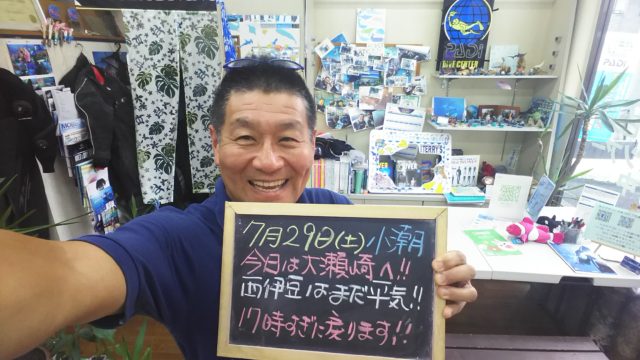 PADI
DIVE CENTER
PADI
TERRY'S
7月29日(土)小潮
今日は大瀬崎へ!!
西伊豆はまだ平気!!
17時すぎに戻ります!!